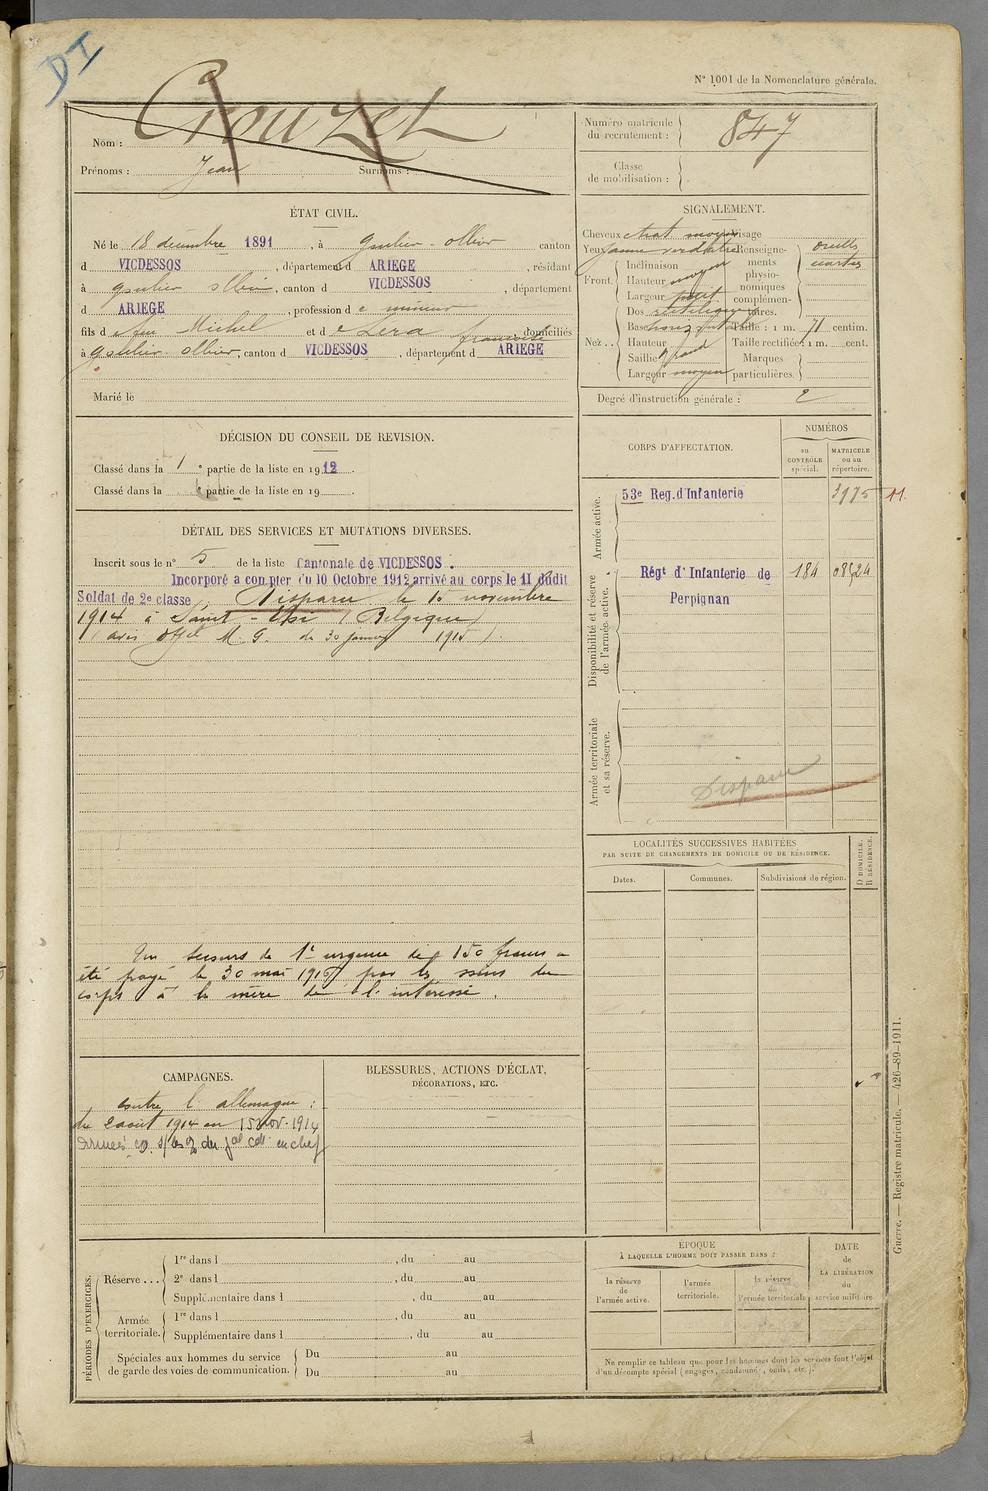 DI
N° 1001 de la Nomenclature générale.
Nom : Crouzet
Prénoms : Jean Surnoms :
Numéro matricule du recrutement : 847
Classe de mobilisation :
ÉTAT CIVIL.
Né le 18 décembre 1891, à Goulier-Olbier canton
d VICDESSOS, département d ARIEGE, résidant
à Goulier Olbier, canton d VICDESSOS, département
d ARIEGE, profession d e mineur
fils d e feu Michel et d e Françoise, domiciliés
à Goulier-Olbier, canton d VICDESSOS, département d ARIEGE
Marié le
SIGNALEMENT.
Cheveux chat moyen Visage
Yeux jaune verdâtre
Front. Inclinaison
Hauteur moyen
Largeur petit
Nez.. Dos rectiligne
Base horizontale
Hauteur
Saillie grand
Largeur moyen
Renseignements physionomiques complémentaires.
Taille : 1 m. 71 centim.
Taille rectifiée : 1 m. cent.
Marques particulières.
Degré d'instruction générale : 2
DÉCISION DU CONSEIL DE REVISION.
Classé dans la 1e partie de la liste en 1912.
Classé dans la e partie de la liste en 19 .
DÉTAIL DES SERVICES ET MUTATIONS DIVERSES.
Inscrit sous le n° 5 de la liste Cantonale de VICDESSOS.
Incorporé a compter du 10 Octobre 1912 arrivé au corps le 11 dudit
Soldat de 2e classe, Disparu le 15 novembre
1914 à Saint-Eloi (Belgique)
(avis Offel M. G. du 30 janvier 1915).
Un secours de 1re urgence de 150 francs a
été payé le 30 mai 1915 par les soins du
corps à la mère de l'intéressé.
CORPS D'AFFECTATION.
NUMÉROS
au CONTRÔLE spécial.
MATRICULE ou au répertoire.
Armée active.
53e Reg. d'Infanterie 3175 11
Disponibilité et réserve de l'armée active.
Régt d'Infanterie de 184 08524
Perpignan
Armée territoriale et sa réserve.
Disparu
LOCALITÉS SUCCESSIVES HABITÉES
PAR SUITE DE CHANGEMENTS DE DOMICILE OU DE RÉSIDENCE.
Dates. Communes. Subdivisions de région. D DOMICILE. R RÉSIDENCE.
CAMPAGNES.
contre l'allemagne :
du 2 août 1914 au 15 nov. 1914
BLESSURES, ACTIONS D'ÉCLAT,
DÉCORATIONS, ETC.
PÉRIODES D'EXERCICES.
Réserve... 1re dans l , du au
2e dans l , du au
Supplémentaire dans l , du au
Armée territoriale. 1re dans l , du au
Supplémentaire dans l , du au
Spéciales aux hommes du service de garde des voies de communication. Du au
Du au
ÉPOQUE
À LAQUELLE L'HOMME DOIT PASSER DANS :
la réserve de l'armée active.
l'armée territoriale.
la réserve de l'armée territoriale.
DATE de LA LIBÉRATION du service militaire.
Ne remplir ce tableau que pour les hommes dont les services font l'objet
d'un décompte spécial (engagés, condamnés, omis, etc.).
Guerre. — Registre matricule. — 426-89-1911.